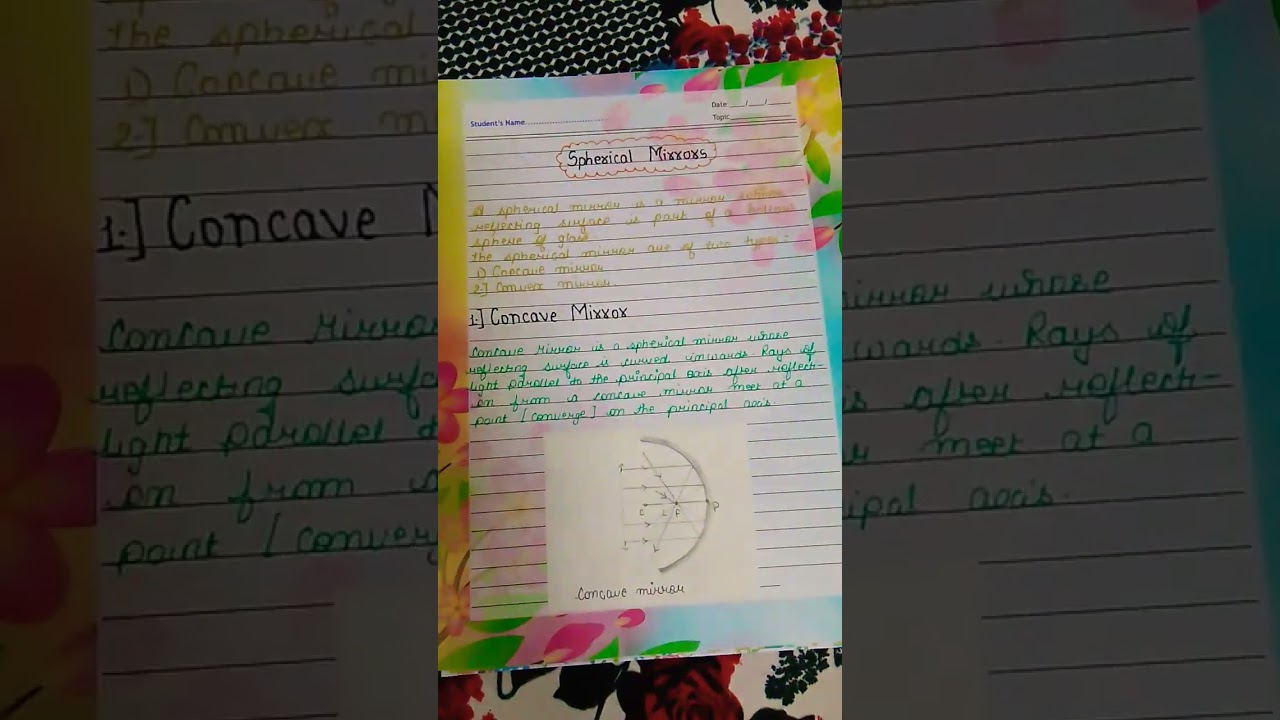 Student's Name
Date: __/__/__
Topic
Spherical Mirrors
A spherical mirror is a mirror whose
reflecting surface is part of a hollow
sphere of glass
the spherical mirror are of two types:-
1) Concave mirror
2.] Convex mirror.
1.] Concave Mirror
Concave Mirror is a spherical mirror whose
reflecting surface is curved inwards. Rays of
light parallel to the principal axis after reflect-
on from a concave mirror meet at a
point [converge] on the principal axis.
C
F
P
Concave mirror